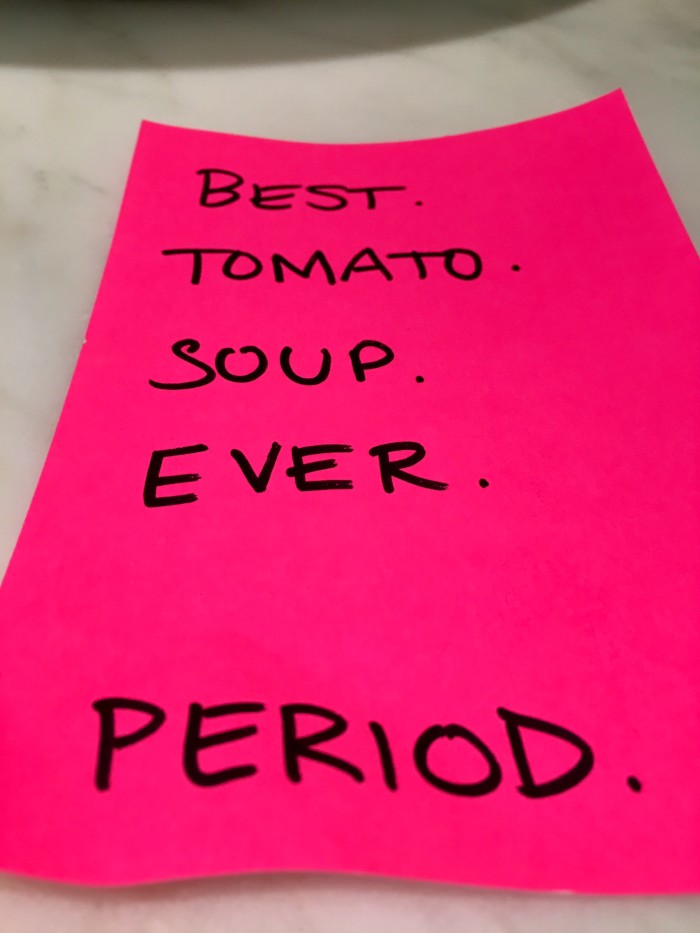 BEST.
TOMATO.
SOUP.
EVER.
PERIOD.